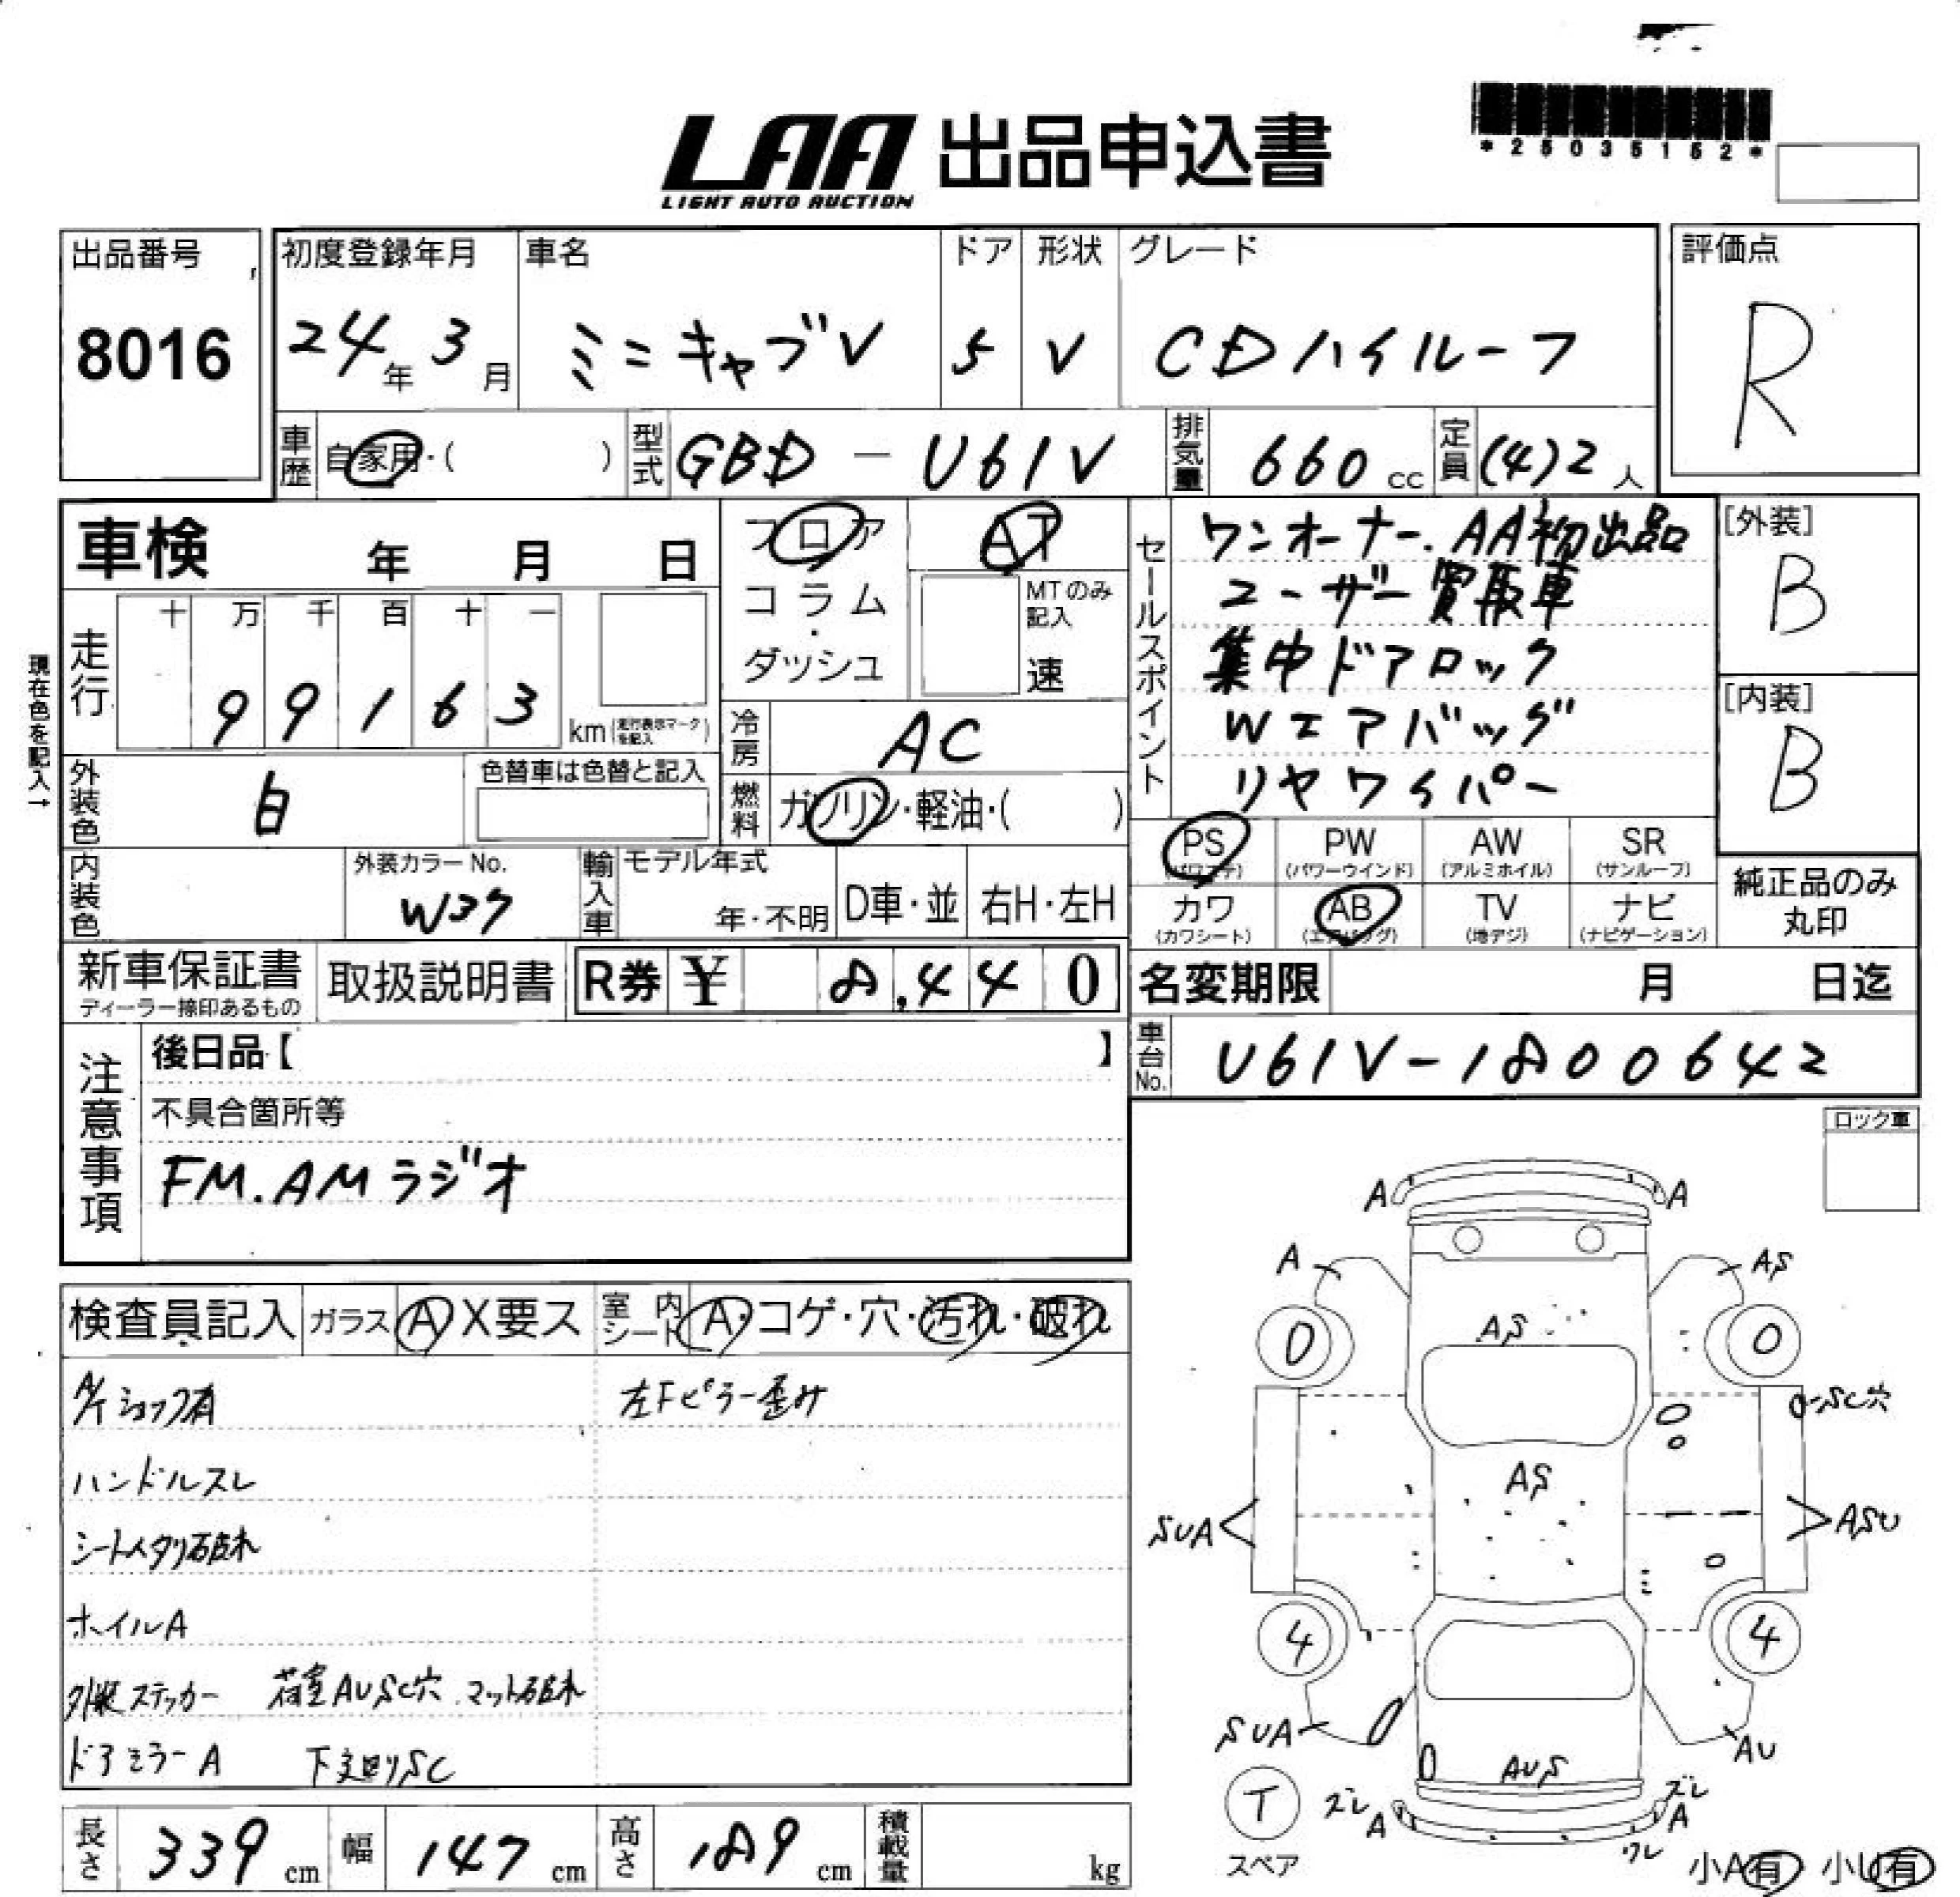 *25035152*
LAA 出品申込書
LIGHT AUTO AUCTION
出品番号 初度登録年月 車名 ドア 形状 グレード 評価点
8016 24年3月 ミニキャブV 5 V CDハイルーフ R
車歴 自家用・( ) 型式 GBD-U61V 排気量 660cc 定員 (4)2人
車検 年 月 日
フロア
コラム・ダッシュ
AT
MTのみ記入
速
セールスポイント
ワンオーナー.AA初出品
ユーザー買取車
集中ドアロック
Wエアバッグ
リヤワイパー
[外装]
B
[内装]
B
現在色を記入→
走行 十 万 千 百 十 一
99163 km(走行表示マークを記入)
冷房 AC
外装色 白 色替車は色替と記入
燃料 ガソリン・軽油・( )
PS (パワステ) PW (パワーウインド) AW (アルミホイル) SR (サンルーフ)
カワ (カワシート) AB (エアバッグ) TV (地デジ) ナビ (ナビゲーション)
純正品のみ
丸印
内装色 外装カラーNo. W37
輸入車 モデル年式 年・不明 D車・並 右H・左H
新車保証書 ディーラー捺印あるもの 取扱説明書 R券 ¥ 8,440
名変期限 月 日迄
車台No. U61V-1800642
注意事項
後日品【 】
不具合箇所等
FM.AMラジオ
ロック車
検査員記入 ガラス A X要ス 室内シート A・コゲ・穴・汚れ・破れ
A/Tショック有 左Fピラー歪み
ハンドルスレ
シートヘタリ破れ
ホイルA
外装ステッカー 荷室AUSC穴 マット破れ
ドアミラーA 下廻りSC
A A
A AS
0 AS 0
SC穴
AS
SUA ASU
4 4
SUA AUS AU
T ズレ A ズレ A
ワレ
スペア
小A有 小U有
長さ 339cm 幅 147cm 高さ 189cm 積載量 kg